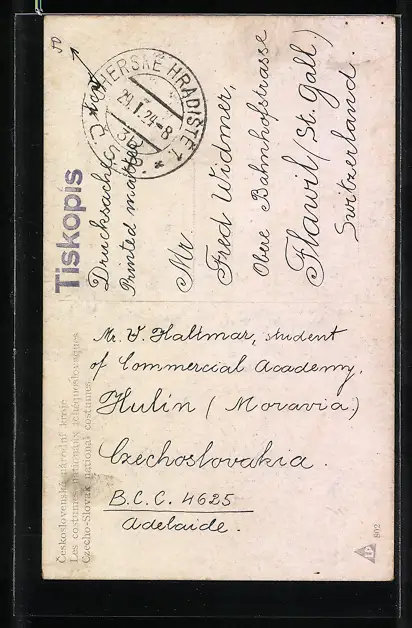 Československé národní kroje
Les costumes nationaux tchéquoslovaques
Czecho-Slovak national costumes
Mr. V. Haltmar, student
of Commercial Academy.
Hulín (Moravia)
Czechoslovakia.
B.C.C. 4625
Adelaide.
Tiskopis
Drucksache
Printed matter
UHERSKÉ HRADIŠTĚ 1
29.I.24-8
Č.S.P.
Mr.
Fred Widmer,
Obere Bahnhofstrasse
Flawil (St. Gall)
Switzerland.
LP
802